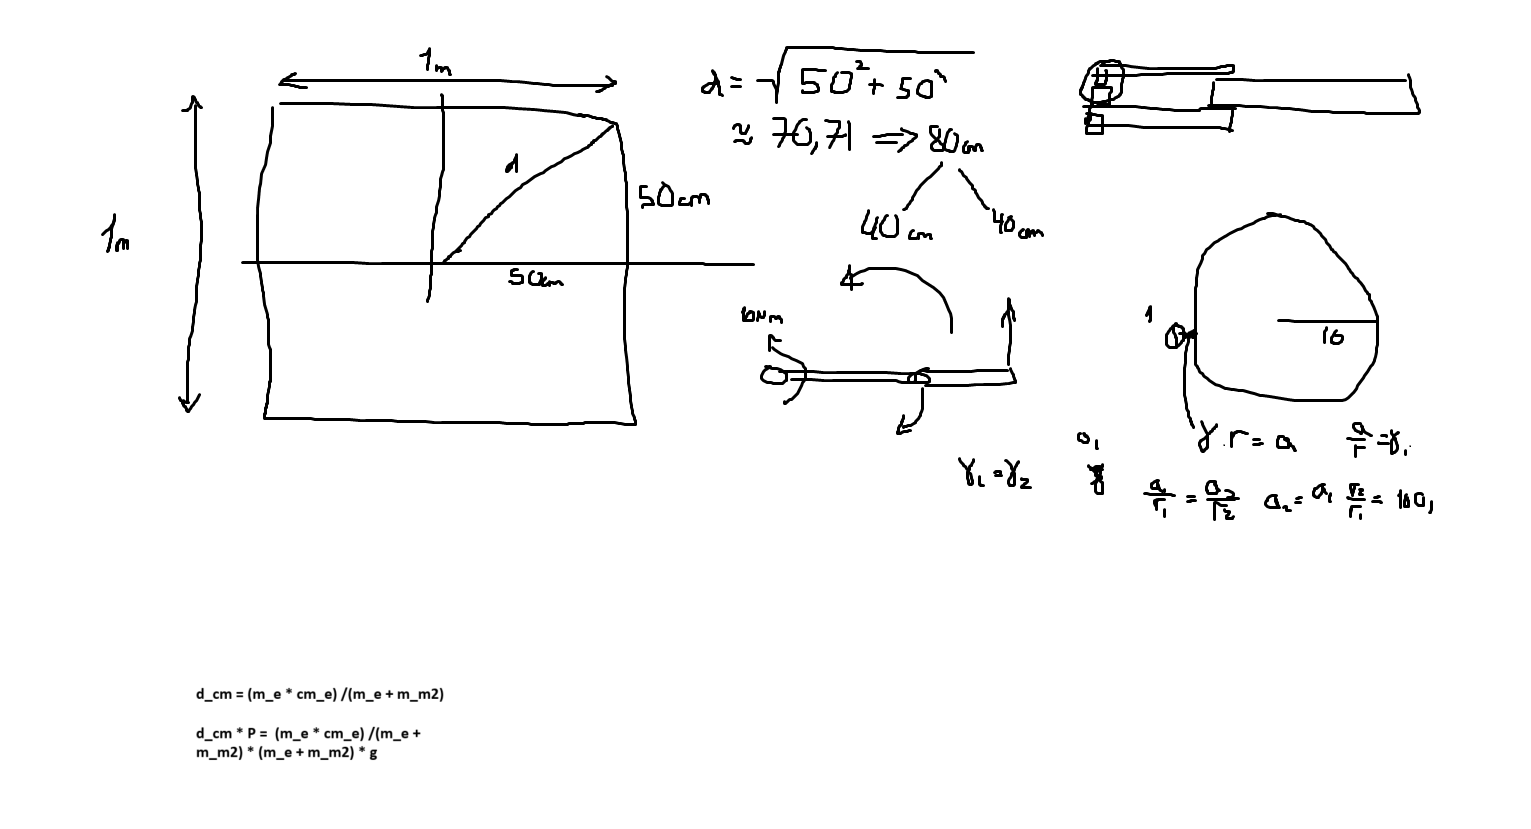 1m
1m
d
50cm
50cm
d = √50² + 50²
≈ 70,71 => 80cm
40cm 40cm
10Nm
1
10
γ.r = a
a/r = γ.
γ₁ = γ₂
a₁/r₁ = a₂/r₂ a₂ = a₁ r₂/r₁ = 10a₁
d_cm = (m_e * cm_e) /(m_e + m_m2)
d_cm * P = (m_e * cm_e) /(m_e +
m_m2) * (m_e + m_m2) * g